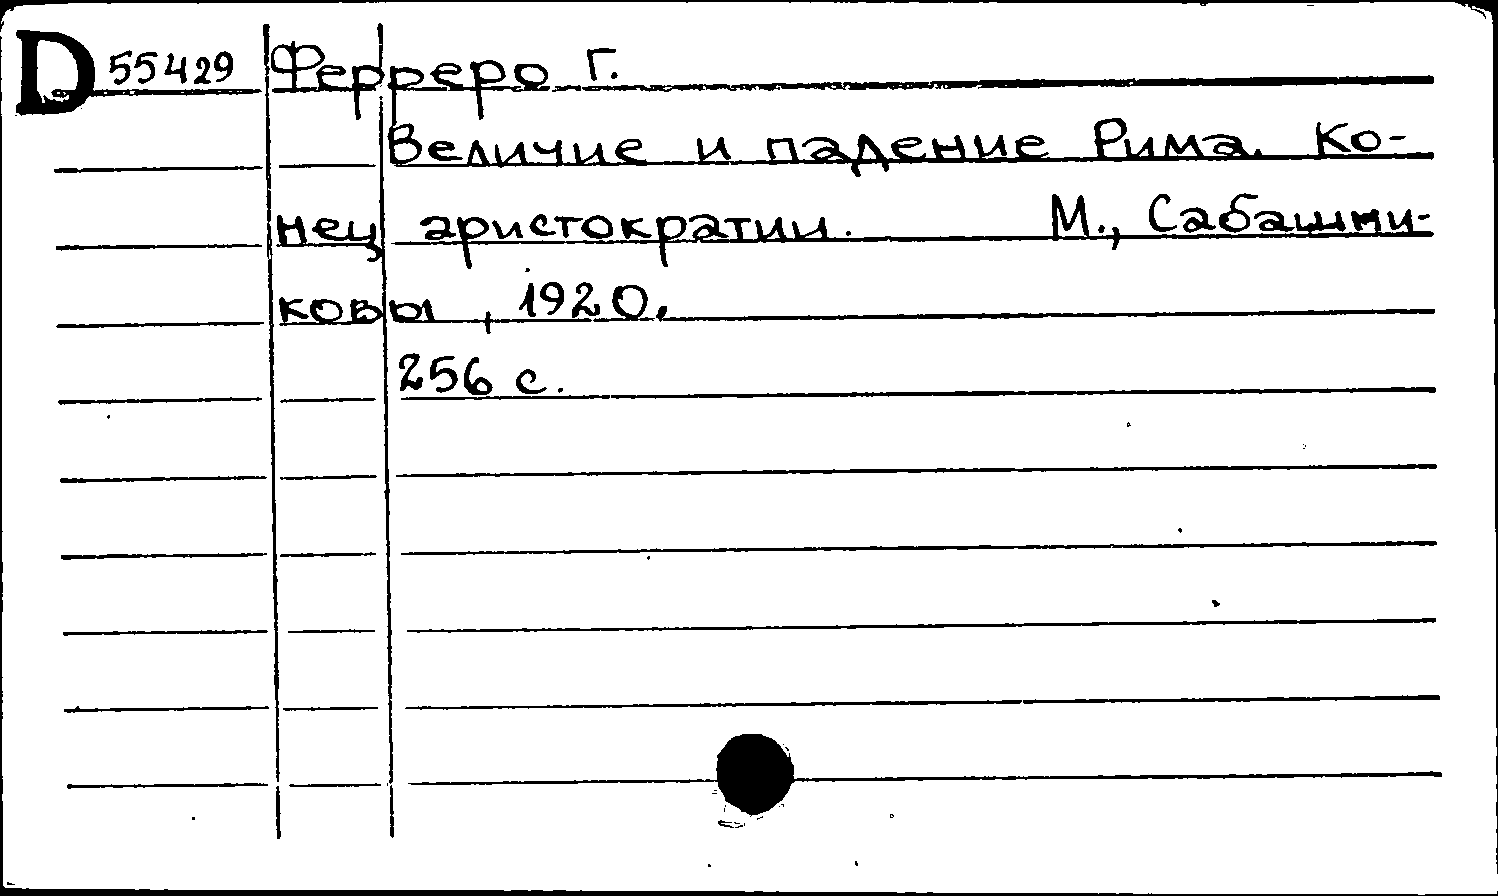 D 55429 Ферреро Г.
Величие и падение Рима. Ко-
нец аристократии. М., Сабашни-
ковы, 1920.
256 с.